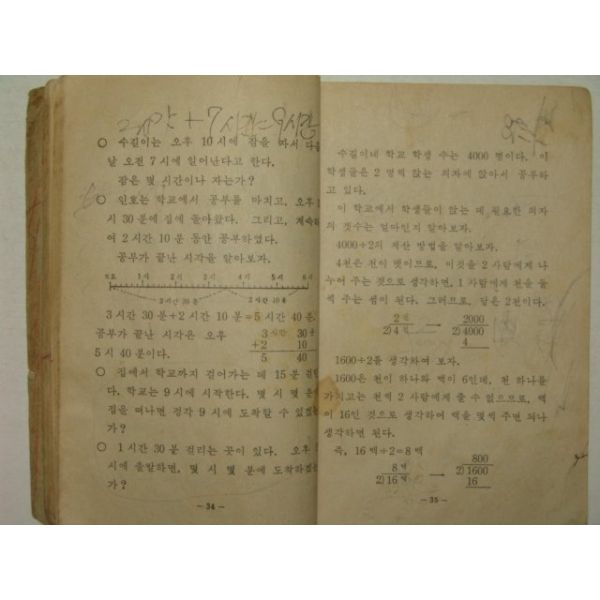 2시간 + 7시간 = 9시간
○ 수길이는 오후 10시에 잠을 자서 다음
날 오전 7시에 일어난다고 한다.
잠은 몇 시간이나 자는가?
○ 인호는 학교에서 공부를 마치고, 오후
시 30분에 집에 돌아왔다. 그리고, 계속하
여 2시간 10분 동안 공부하였다.
공부가 끝난 시각을 알아보자.
정오 1시 2시 3시 4시 5시 6시
3시간 30분 2시간 10분
3시간 30분+2시간 10분=5시간 40분.
공부가 끝난 시각은 오후 3시간 30분
+2 10
5시 40분이다. 5 40
○ 집에서 학교까지 걸어가는 데 15분 걸린
다. 학교는 9시에 시작한다. 몇 시 몇 분에
집을 떠나면 정각 9시에 도착할 수 있겠는
가?
○ 1시간 30분 걸리는 곳이 있다. 오후
시에 출발하면, 몇 시 몇 분에 도착하겠는
가?
- 34 -
수길이네 학교 학생 수는 4000명이다. 이
학생들은 2명씩 앉는 의자에 앉아서 공부하
고 있다.
이 학교에서 학생들이 앉는 데 필요한 의자
의 갯수는 얼마인지 알아보자.
4000÷2의 계산 방법을 알아보자.
4천은 천이 넷이므로, 이것을 2사람에게 나
누어 주는 것으로 생각하면, 1사람에게 천을 둘
씩 주는 셈이 된다. 그러므로, 답은 2천이다.
2천 2000
2)4천 → 2)4000
4
1600÷2를 생각하여 보자.
1600은 천이 하나와 백이 6인데, 천 하나를
가지고는 천씩 2사람에게 줄 수 없으므로, 백
이 16인 것으로 생각하여 백을 몇씩 주면 되나
생각하면 된다.
즉, 16백÷2=8백
8백 800
2)16백 → 2)1600
16
- 35 -